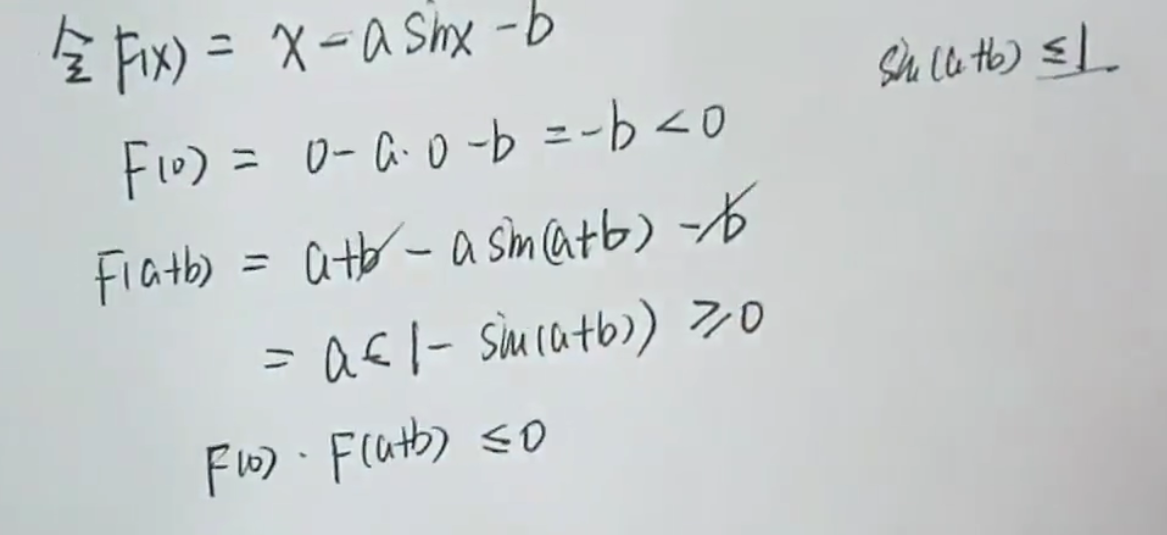 令 F(x) = x - a sinx - b
sin(a+b) ≤ 1
F(0) = 0 - a·0 - b = -b < 0
F(a+b) = a+b - a sin(a+b) - b
= a(1 - sin(a+b)) ⩾ 0
F(0) · F(a+b) ≤ 0